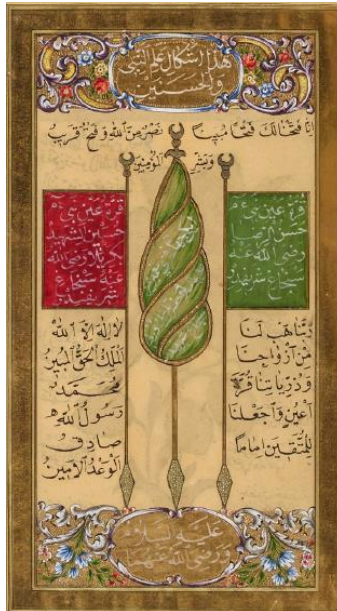 هذا اشكال علم النبي
والحسنين
انا فتحنا لك فتحا مبينا نصر من الله وفتح قريب
وبشر المؤمنين
قرة عين نبي
حسن الرضا
رضى الله عنه
سنجاغ شريفيدر
قرة عين نبي
حسين الشهيد
كربلا رضى الله
عنه سنجاغ
شريفيدر
ربنا هب لنا
من ازواجنا
وذرياتنا قرة
اعين واجعلنا
للمتقين اماما
لا اله الا الله
الملك الحق المبين
محمد
رسول الله
صادق
الوعد الامين
عليه السلام
ورضى الله عنهما